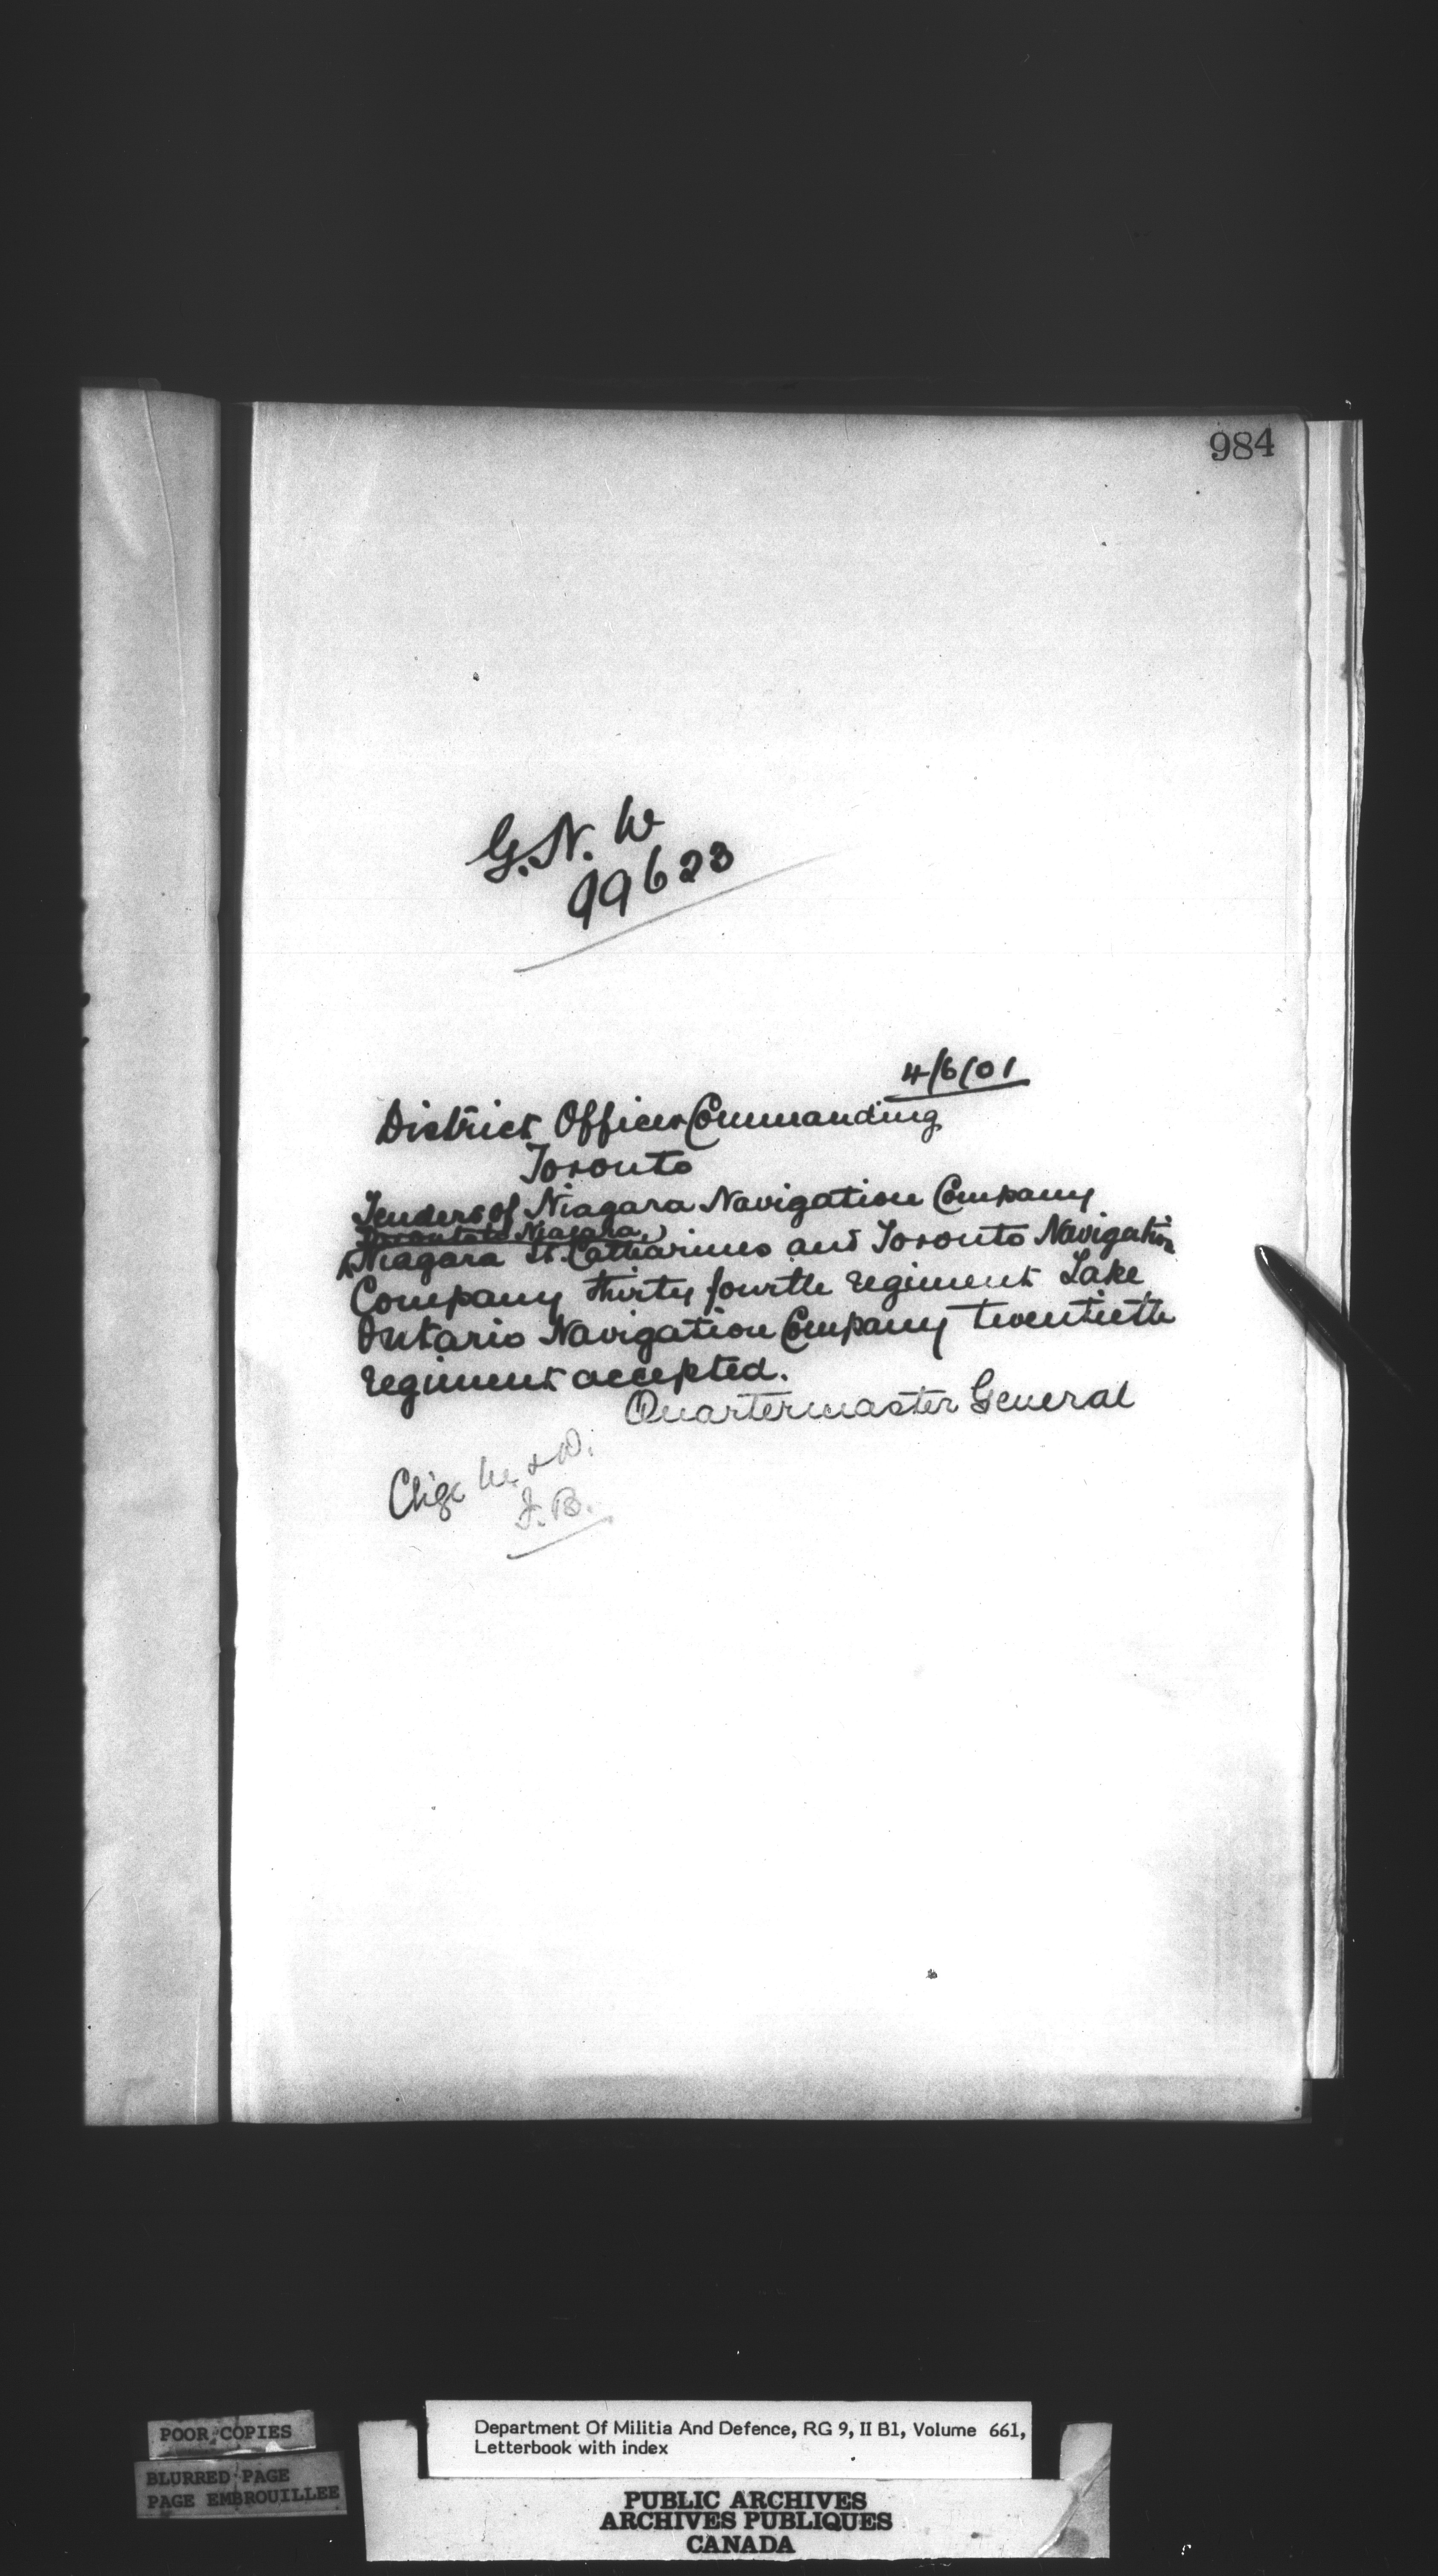 984
G.N.W
99623
4/6/01
District Officer Commanding
Toronto
Tenders of Niagara Navigation Company
Toronto to Niagara,
Niagara St. Catharines and Toronto Navigation
Company thirty fourth regiment Lake
Ontario Navigation Company twentieth
regiment accepted.
Quartermaster General
Chge M. & D.
F.B.
POOR COPIES
BLURRED PAGE
PAGE EMBROUILLEE
Department Of Militia And Defence, RG 9, II B1, Volume 661,
Letterbook with index
PUBLIC ARCHIVES
ARCHIVES PUBLIQUES
CANADA